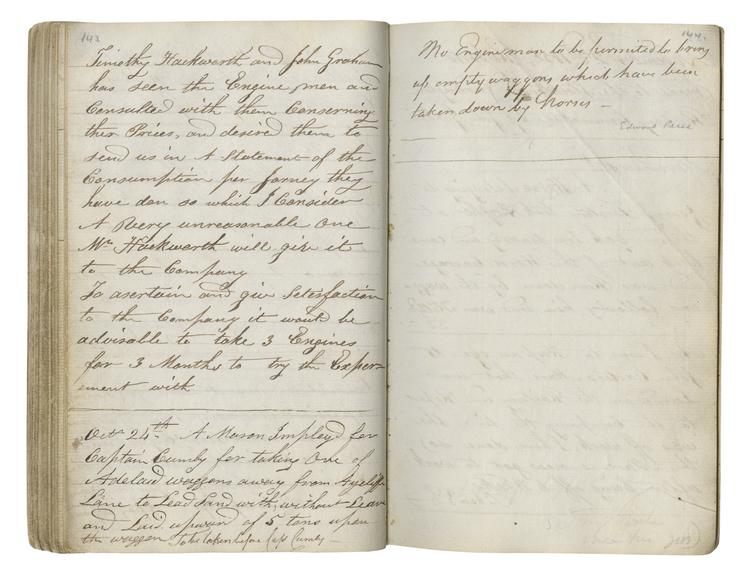 143
Timothy Hackworth and John Graham
has seen the Engine men and
Consulted with them Conserning
ther Prices, and desired them to
send us in A Statement of the
Consumption per Jorney they
have don so which I Consider
A Very unreasonable One
Mr Hackworth will give it
to the Company
To asertain and give Satesfaction
to the Company it would be
advisable to take 3 Engines
for 3 Months to try the Exper-
ement with
Octr 24th A Mason Imployd for
Captain Cumby for taking One of
Adelaid waggons away from Aycliffe
Lane to Lead Sand with, without Leave
and Laid upward of 5 tons upon
the waggon To be taken before Capt Cumby —
144.
No Engine man to be permitted to bring
up empty waggons which have been
taken down by horses —
Edward Pease